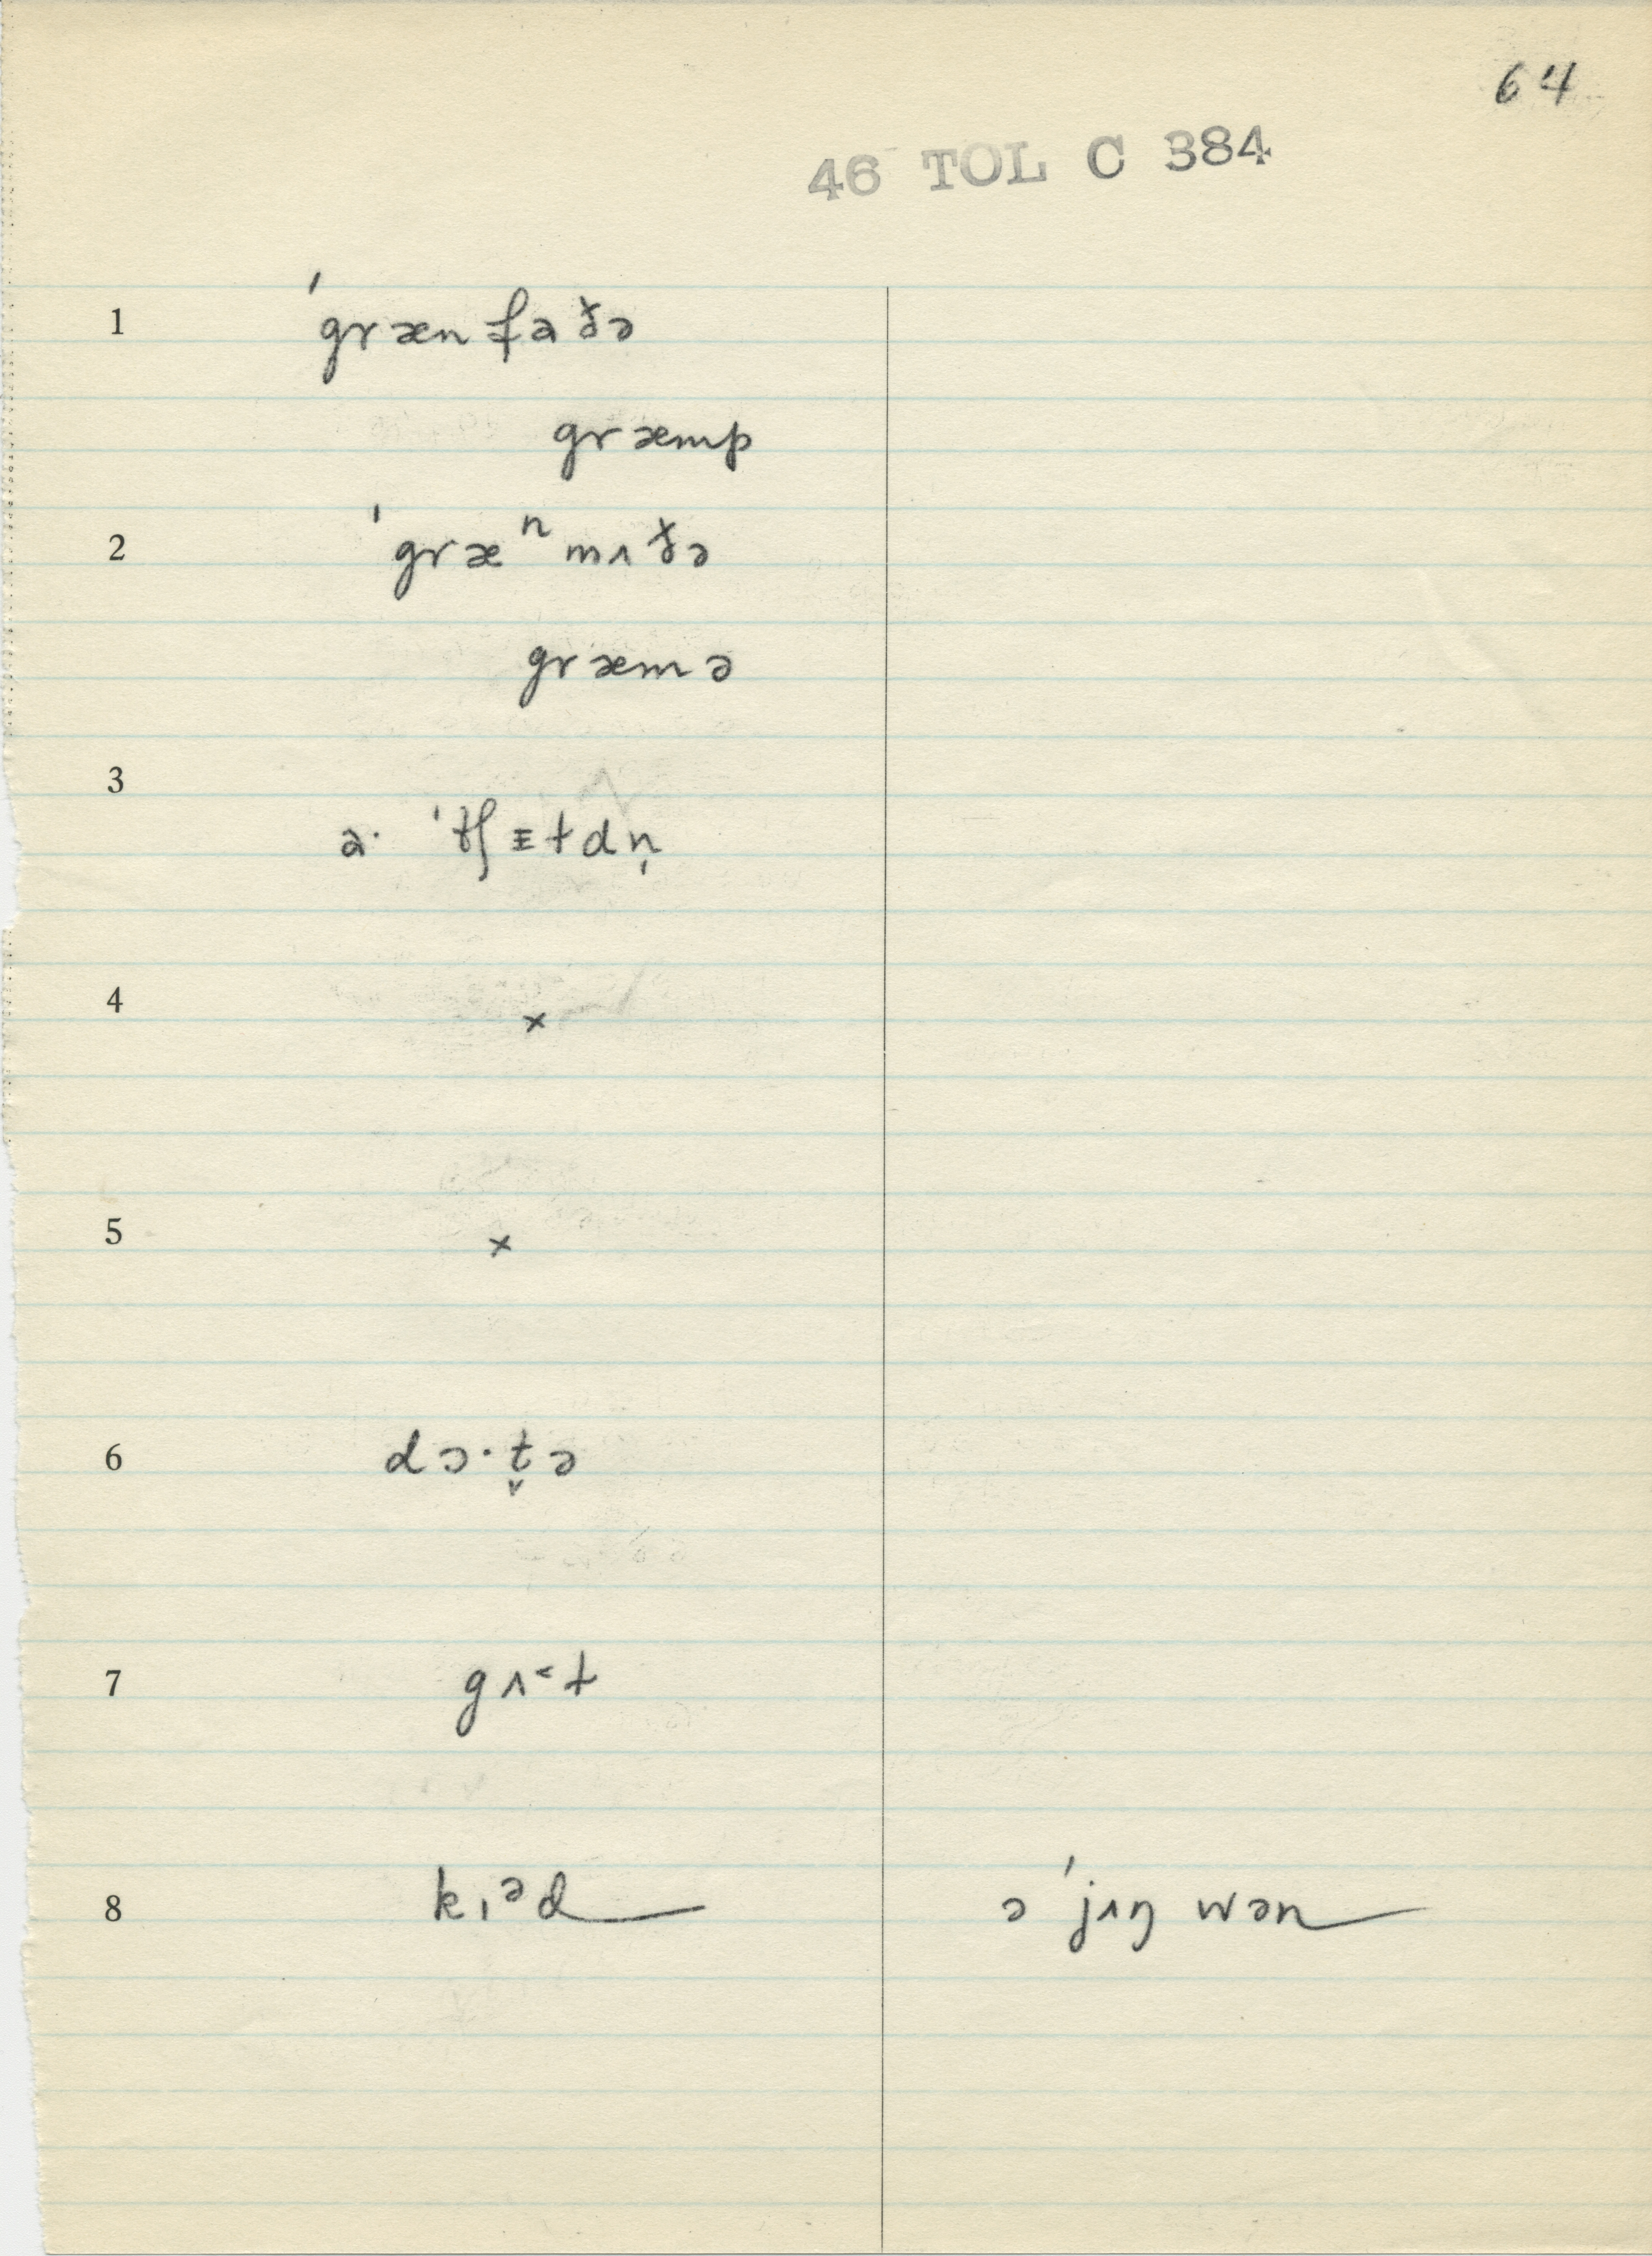 64
46 TOL C 384
1 ˈgrænfaðə
græmp
2 ˈgræⁿmʌðə
græmə
3
a· ˈtʃɪtdn̩
4 ×
5 ×
6 dɔ·t̬ə
7 gʌ˂t
8 kɪᵊd ə ˈjʌŋ wən